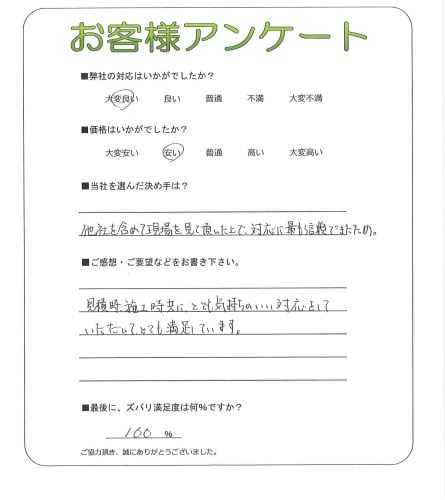 お客様アンケート
■弊社の対応はいかがでしたか？
大変良い 良い 普通 不満 大変不満
■価格はいかがでしたか？
大変安い 安い 普通 高い 大変高い
■当社を選んだ決め手は？
他社を含めて現場を見て頂いた上で、対応に最も信頼できたため。
■ご感想・ご要望などをお書き下さい。
見積時、施工時共に、とても気持ちのいい対応をして
いただいて、とても満足しています。
■最後に、ズバリ満足度は何％ですか？
100 ％
ご協力頂き、誠にありがとうございました。